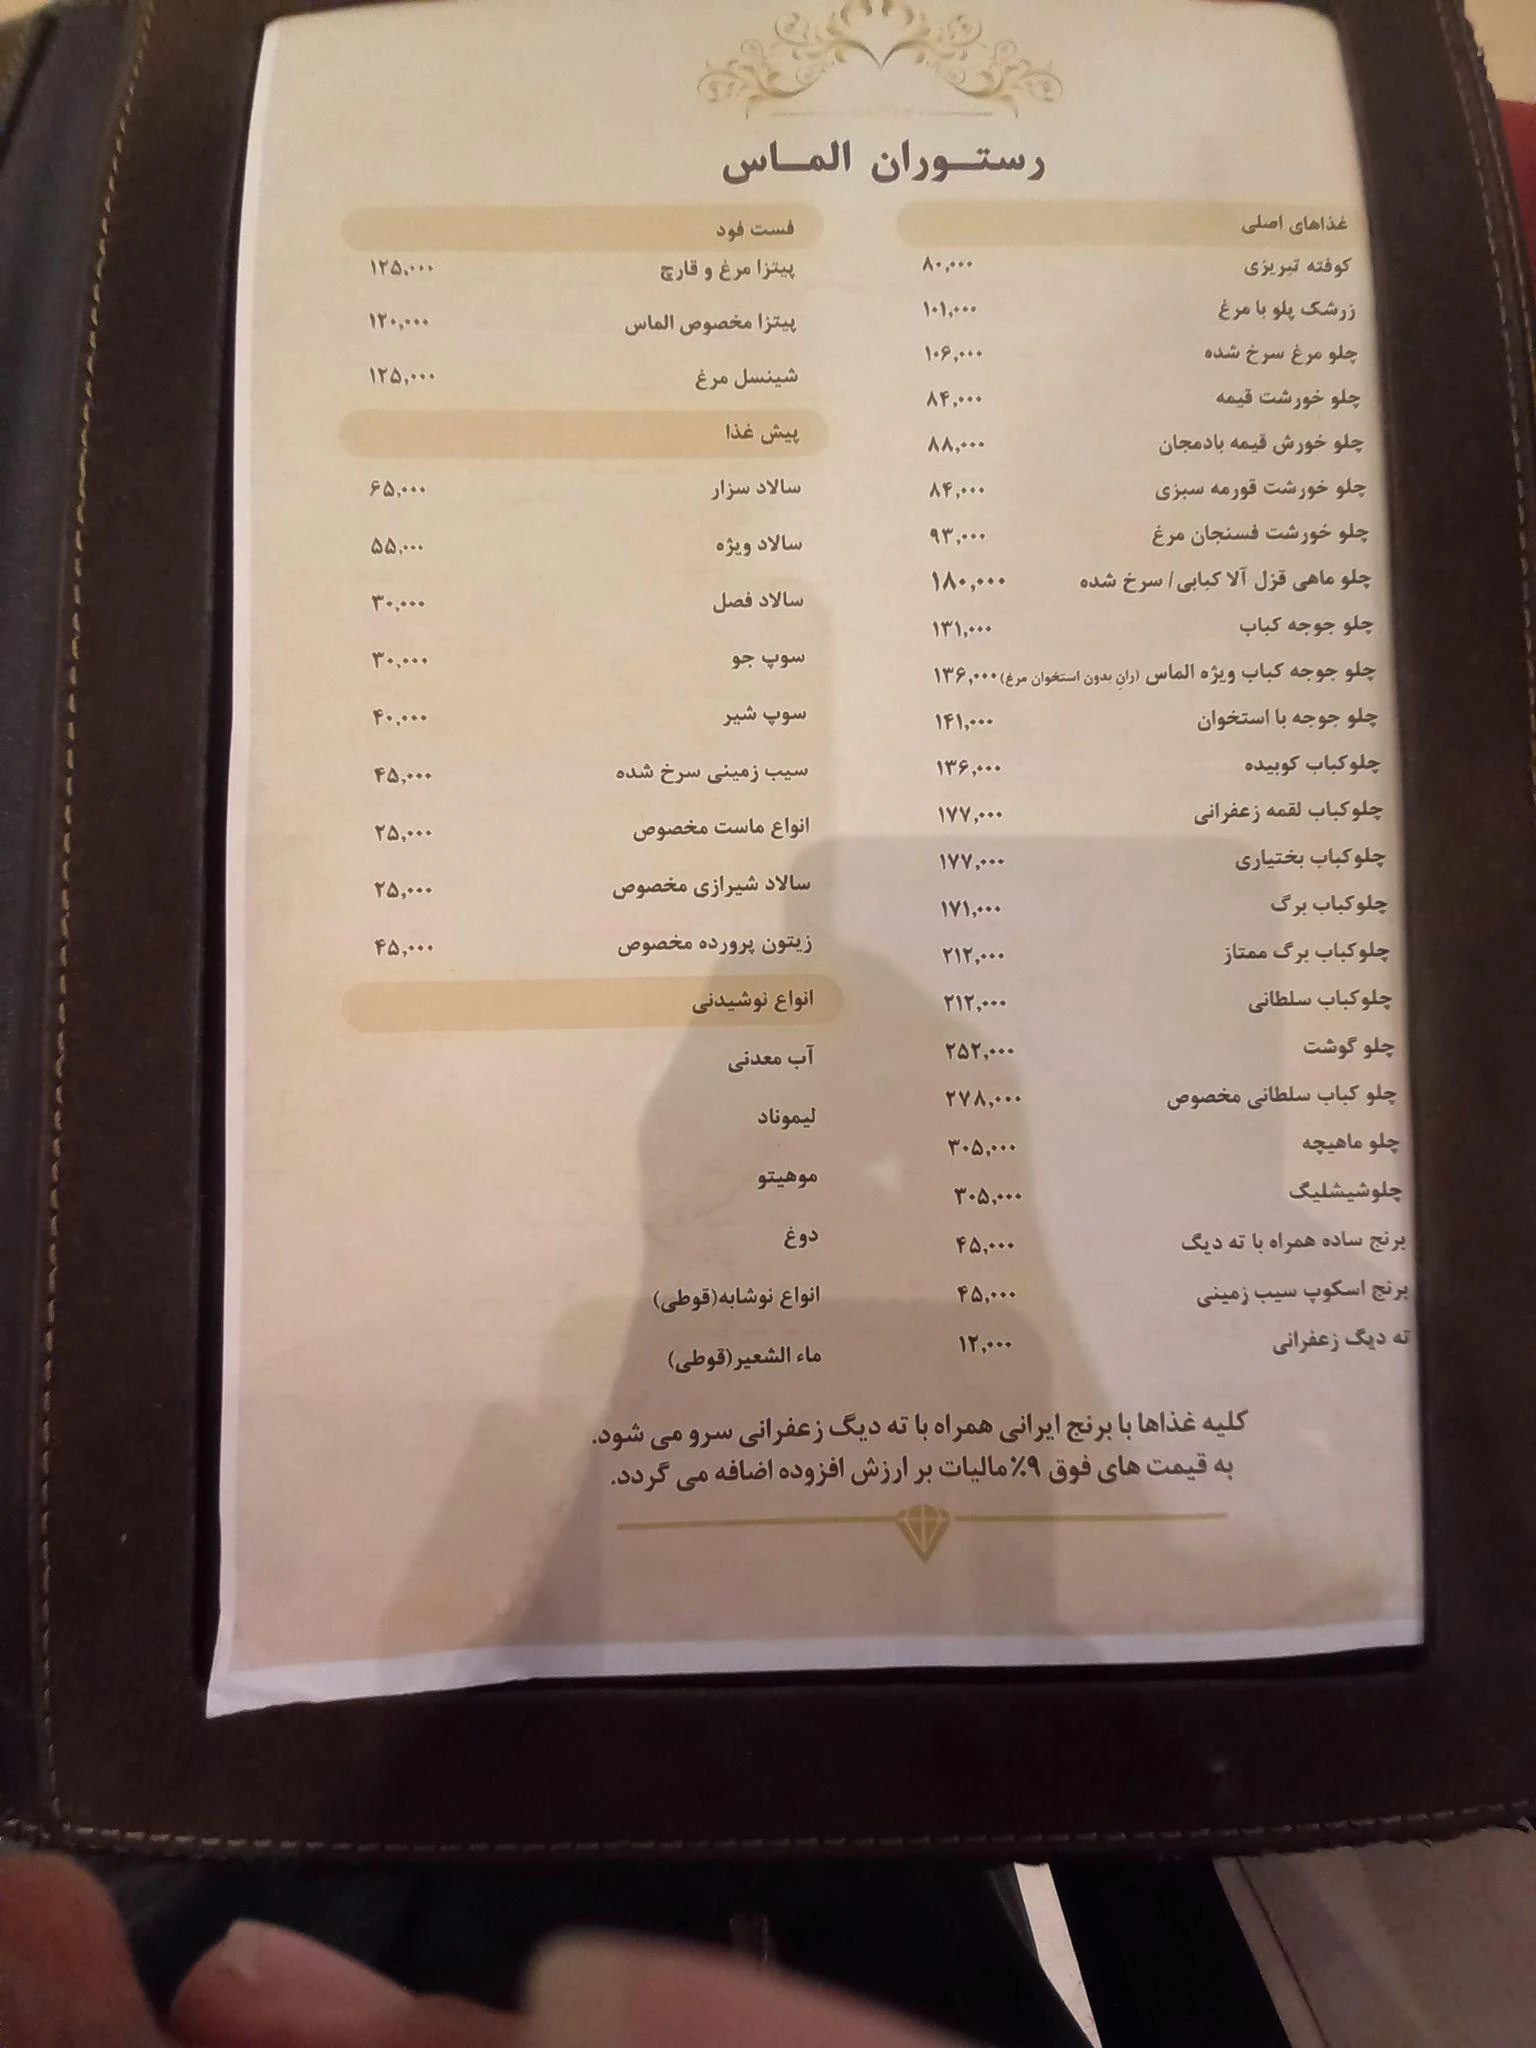 رستوران الماس
غذاهای اصلی
کوفته تبریزی ۸۰,۰۰۰
زرشک پلو با مرغ ۱۰۱,۰۰۰
چلو مرغ سرخ شده ۱۰۶,۰۰۰
چلو خورشت قیمه ۸۴,۰۰۰
چلو خورش قیمه بادمجان ۸۸,۰۰۰
چلو خورشت قورمه سبزی ۸۴,۰۰۰
چلو خورشت فسنجان مرغ ۹۳,۰۰۰
چلو ماهی قزل آلا کبابی/ سرخ شده ۱۸۰,۰۰۰
چلو جوجه کباب ۱۳۱,۰۰۰
چلو جوجه کباب ویژه الماس (رانِ بدون استخوان مرغ) ۱۳۶,۰۰۰
چلو جوجه با استخوان ۱۴۱,۰۰۰
چلوکباب کوبیده ۱۳۶,۰۰۰
چلوکباب لقمه زعفرانی ۱۷۷,۰۰۰
چلوکباب بختیاری ۱۷۷,۰۰۰
چلوکباب برگ ۱۷۱,۰۰۰
چلوکباب برگ ممتاز ۲۱۲,۰۰۰
چلوکباب سلطانی ۲۱۲,۰۰۰
چلو گوشت ۲۵۲,۰۰۰
چلو کباب سلطانی مخصوص ۲۷۸,۰۰۰
چلو ماهیچه ۳۰۵,۰۰۰
چلوشیشلیگ ۳۰۵,۰۰۰
برنج ساده همراه با ته دیگ ۴۵,۰۰۰
برنج اسکوپ سیب زمینی ۴۵,۰۰۰
ته دیگ زعفرانی ۱۲,۰۰۰
فست فود
پیتزا مرغ و قارچ ۱۲۵,۰۰۰
پیتزا مخصوص الماس ۱۲۰,۰۰۰
شینسل مرغ ۱۲۵,۰۰۰
پیش غذا
سالاد سزار ۶۵,۰۰۰
سالاد ویژه ۵۵,۰۰۰
سالاد فصل ۳۰,۰۰۰
سوپ جو ۳۰,۰۰۰
سوپ شیر ۴۰,۰۰۰
سیب زمینی سرخ شده ۴۵,۰۰۰
انواع ماست مخصوص ۲۵,۰۰۰
سالاد شیرازی مخصوص ۲۵,۰۰۰
زیتون پرورده مخصوص ۴۵,۰۰۰
انواع نوشیدنی
آب معدنی
لیموناد
موهیتو
دوغ
انواع نوشابه(قوطی)
ماء الشعیر(قوطی)
کلیه غذاها با برنج ایرانی همراه با ته دیگ زعفرانی سرو می شود.
به قیمت های فوق ۹٪ مالیات بر ارزش افزوده اضافه می گردد.